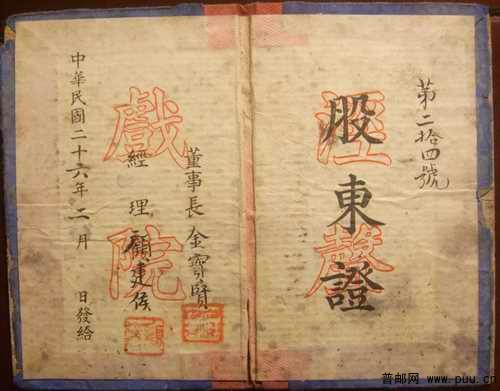 第二拾四號
股東證
涇聲
戲院
董事長金寶賢
經理顧建侯
中華民國二十六年二月 日發給
普邮网 www.puu.cn